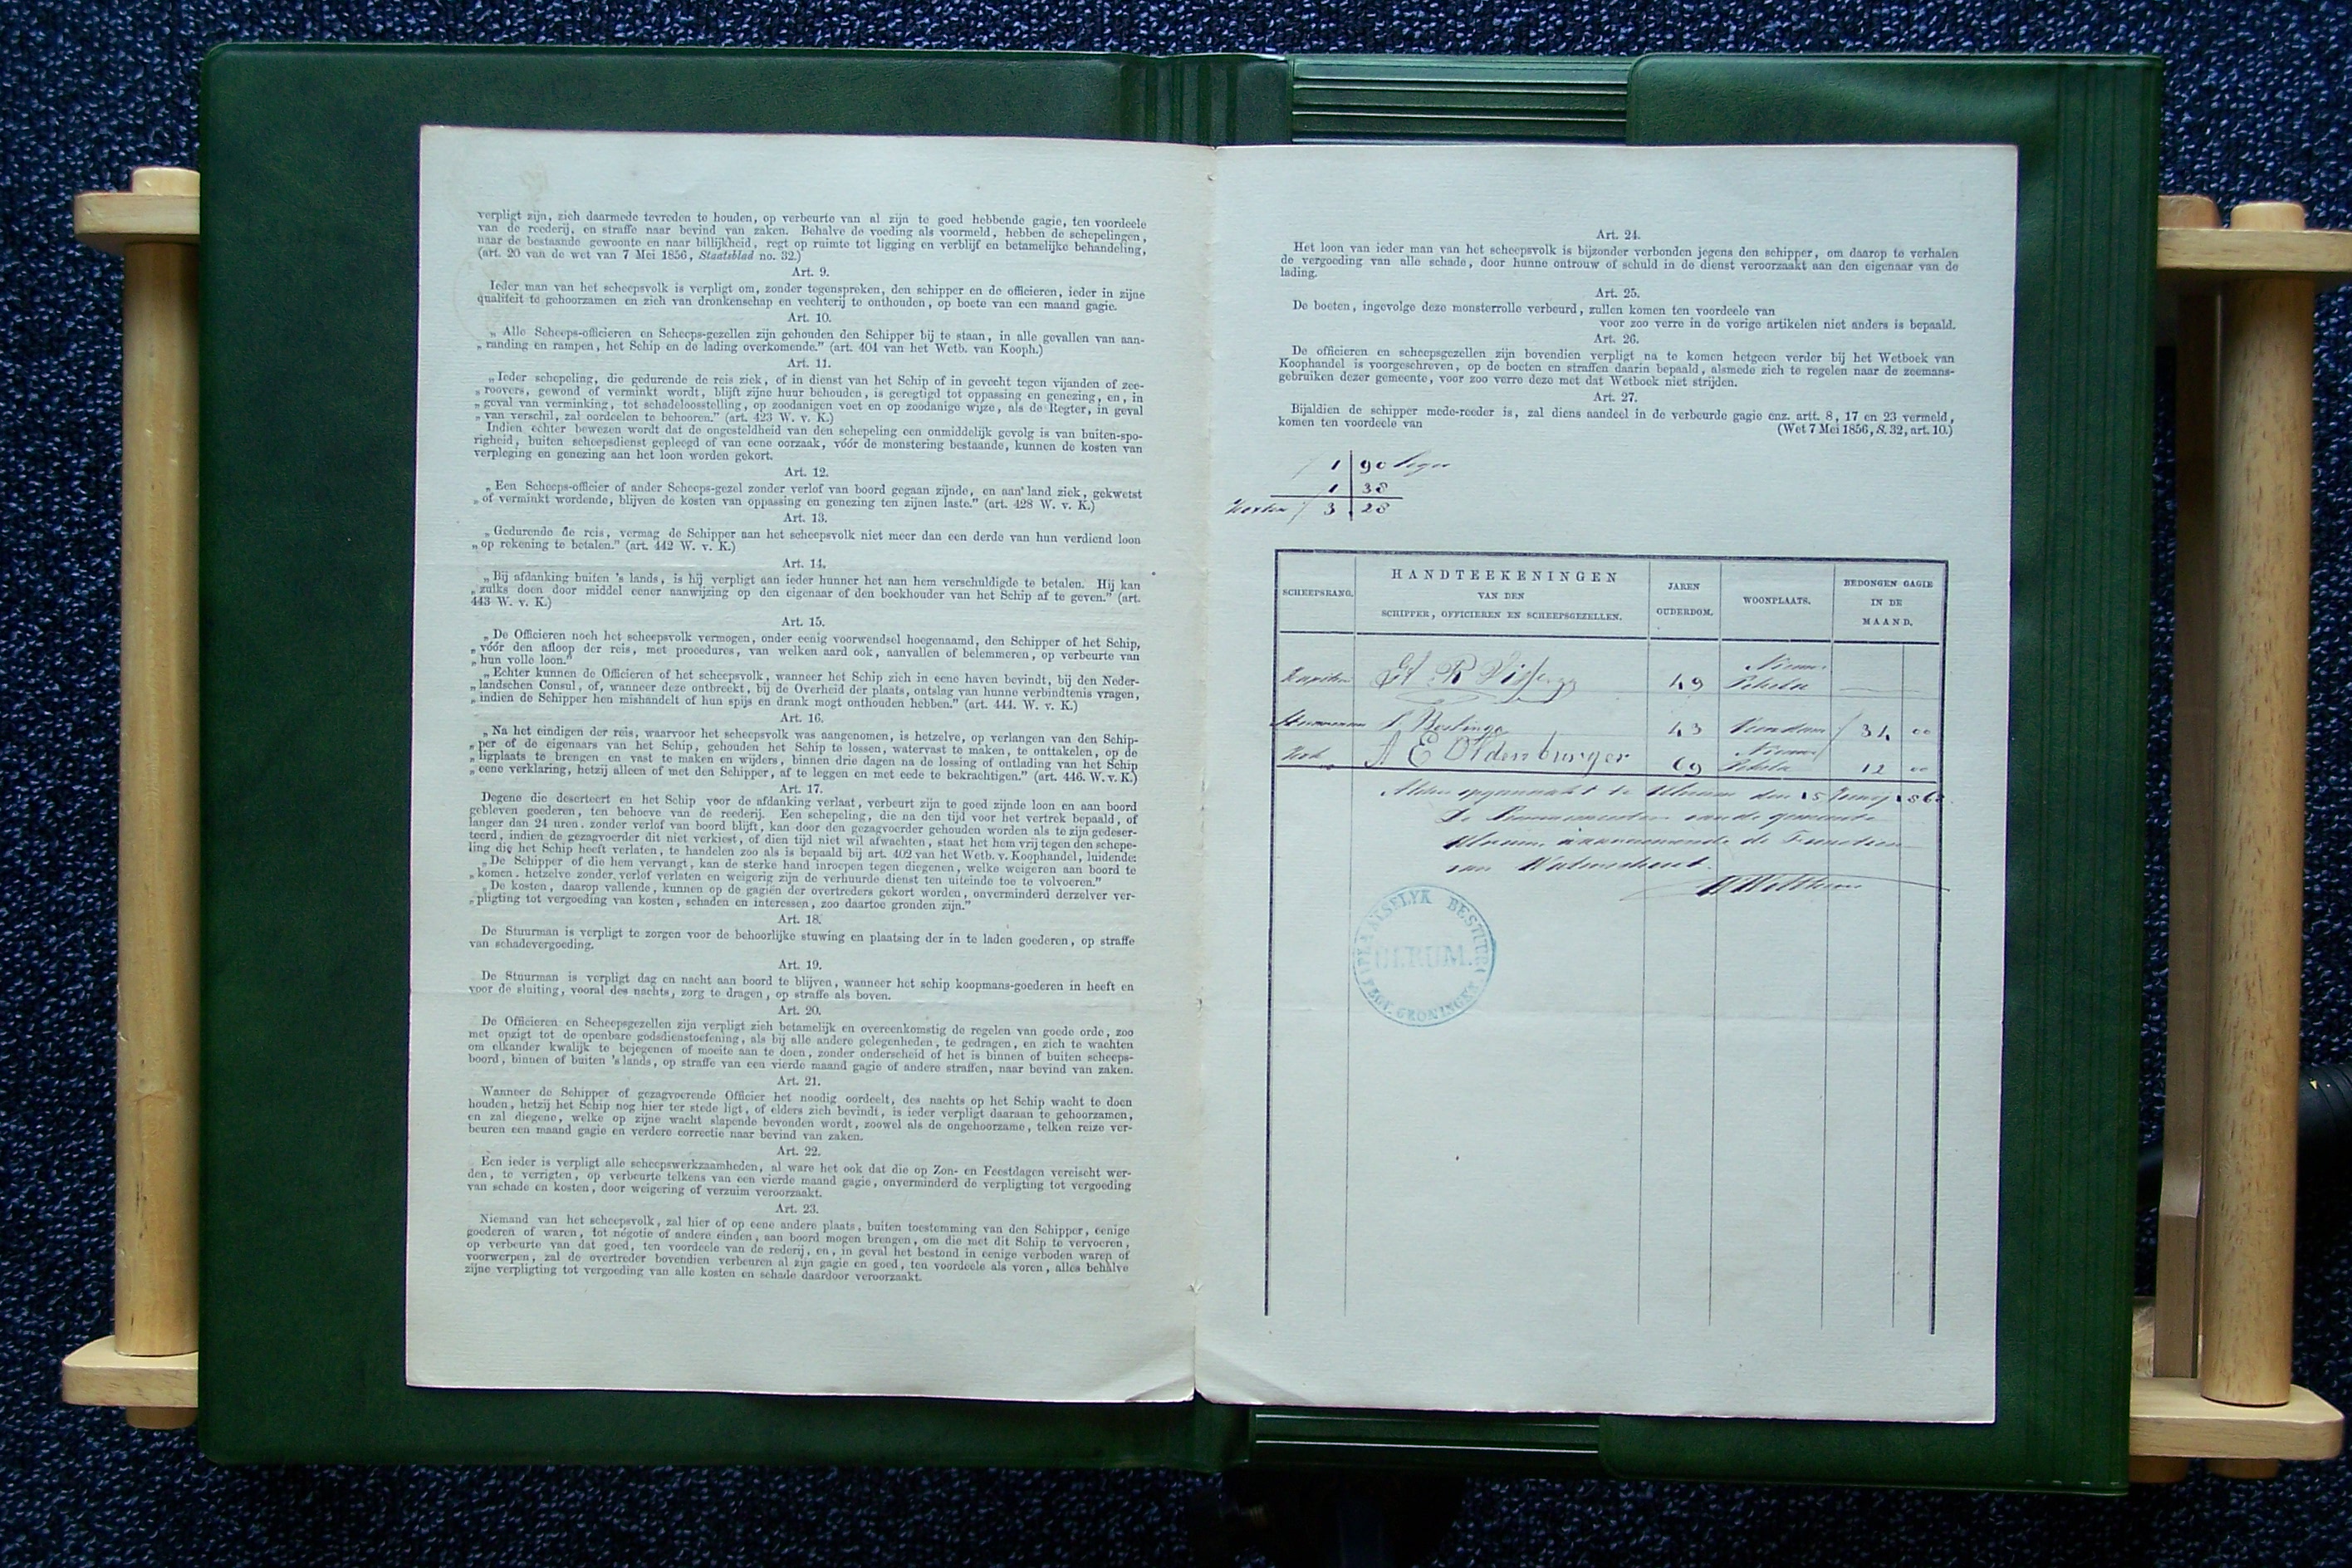 verpligt zijn, zich daarmede tevreden te houden, op verbeurte van al zijn te goed hebbende gagie, ten voordeele
van de reederij, en straffe naar bevind van zaken. Behalve de voeding als voormeld, hebben de schepelingen,
naar de bestaande gewoonte en naar billijkheid, regt op ruimte tot ligging en verblijf en betamelijke behandeling,
(art. 20 van de wet van 7 Mei 1856, Staatsblad no. 32.)
Art. 9.
Ieder man van het scheepsvolk is verpligt om, zonder tegenspreken, den schipper en de officieren, ieder in zijne
qualiteit te gehoorzamen en zich van dronkenschap en vechterij te onthouden, op boete van een maand gagie.
Art. 10.
„Alle Scheeps-officieren en Scheeps-gezellen zijn gehouden den Schipper bij te staan, in alle gevallen van aan-
„randing en rampen, het Schip en de lading overkomende.” (art. 404 van het Wetb. van Kooph.)
Art. 11.
„Ieder schepeling, die gedurende de reis ziek, of in dienst van het Schip of in gevecht tegen vijanden of zee-
„roovers, gewond of verminkt wordt, blijft zijne huur behouden, is geregtigd tot oppassing en genezing, en, in
„geval van verminking, tot schadeloosstelling, op zoodanigen voet en op zoodanige wijze, als de Regter, in geval
„van verschil, zal oordeelen te behooren.” (art. 423 W. v. K.)
Indien echter bewezen wordt dat de ongesteldheid van den schepeling een onmiddelijk gevolg is van buiten-spo-
righeid, buiten scheepsdienst gepleegd of van eene oorzaak, vóór de monstering bestaande, kunnen de kosten van
verpleging en genezing aan het loon worden gekort.
Art. 12.
„Een Scheeps-officier of ander Scheeps-gezel zonder verlof van boord gegaan zijnde, en aan land ziek, gekwetst
„of verminkt wordende, blijven de kosten van oppassing en genezing ten zijnen laste.” (art. 428 W. v. K.)
Art. 13.
„Gedurende de reis, vermag de Schipper aan het scheepsvolk niet meer dan een derde van hun verdiend loon
„op rekening te betalen.” (art. 442 W. v. K.)
Art. 14.
„Bij afdanking buiten 's lands, is hij verpligt aan ieder hunner het aan hem verschuldigde te betalen. Hij kan
„zulks doen door middel eener aanwijzing op den eigenaar of den boekhouder van het Schip af te geven.” (art.
443 W. v. K.)
Art. 15.
„De Officieren noch het scheepsvolk vermogen, onder eenig voorwendsel hoegenaamd, den Schipper of het Schip,
„vóór den afloop der reis, met procedures, van welken aard ook, aanvallen of belemmeren, op verbeurte van
„hun volle loon.”
„Echter kunnen de Officieren of het scheepsvolk, wanneer het Schip zich in eene haven bevindt, bij den Neder-
„landschen Consul, of, wanneer deze ontbreekt, bij de Overheid der plaats, ontslag van hunne verbindtenis vragen,
„indien de Schipper hen mishandelt of hun spijs en drank mogt onthouden hebben.” (art. 444. W. v. K.)
Art. 16.
„Na het eindigen der reis, waarvoor het scheepsvolk was aangenomen, is hetzelve, op verlangen van den Schip-
„per of de eigenaars van het Schip, gehouden het Schip te lossen, watervast te maken, te onttakelen, op de
„ligplaats te brengen en vast te maken en wijders, binnen drie dagen na de lossing of ontlading van het Schip
„eene verklaring, hetzij alleen of met den Schipper, af te leggen en met eede te bekrachtigen.” (art. 446. W. v. K.)
Art. 17.
Degene die deserteert en het Schip voor de afdanking verlaat, verbeurt zijn te goed zijnde loon en aan boord
gebleven goederen, ten behoeve van de reederij. Een schepeling, die na den tijd voor het vertrek bepaald, of
langer dan 24 uren, zonder verlof van boord blijft, kan door den gezagvoerder gehouden worden als te zijn gedeser-
teerd, indien de gezagvoerder dit niet verkiest, of dien tijd niet wil afwachten, staat het hem vrij tegen den schepe-
ling die het Schip heeft verlaten, te handelen zoo als is bepaald bij art. 402 van het Wetb. v. Koophandel, luidende:
„De Schipper of die hem vervangt, kan de sterke hand inroepen tegen diegenen, welke weigeren aan boord te
„komen, hetzelve zonder verlof verlaten en weigerig zijn de verhuurde dienst ten uiteinde toe te volvoeren.”
„De kosten, daarop vallende, kunnen op de gagiën der overtreders gekort worden, onverminderd derzelver ver-
„pligting tot vergoeding van kosten, schaden en interessen, zoo daartoe gronden zijn.”
Art. 18.
De Stuurman is verpligt te zorgen voor de behoorlijke stuwing en plaatsing der in te laden goederen, op straffe
van schadevergoeding.
Art. 19.
De Stuurman is verpligt dag en nacht aan boord te blijven, wanneer het schip koopmans-goederen in heeft en
voor de sluiting, vooral des nachts, zorg te dragen, op straffe als boven.
Art. 20.
De Officieren en Scheepsgezellen zijn verpligt zich betamelijk en overeenkomstig de regelen van goede orde, zoo
met opzigt tot de openbare godsdienstoefening, als bij alle andere gelegenheden, te gedragen, en zich te wachten
om elkander kwalijk te bejegenen of moeite aan te doen, zonder onderscheid of het is binnen of buiten scheeps-
boord, binnen of buiten 's lands, op straffe van een vierde maand gagie of andere straffen, naar bevind van zaken.
Art. 21.
Wanneer de Schipper of gezagvoerende Officier het noodig oordeelt, des nachts op het Schip wacht te doen
houden, hetzij het Schip nog hier ter stede ligt, of elders zich bevindt, is ieder verpligt daaraan te gehoorzamen,
en zal diegene, welke op zijne wacht slapende bevonden wordt, zoowel als de ongehoorzame, telken reize ver-
beuren een maand gagie en verdere correctie naar bevind van zaken.
Art. 22.
Een ieder is verpligt alle scheepswerkzaamheden, al ware het ook dat die op Zon- en Feestdagen vereischt wer-
den, te verrigten, op verbeurte telkens van een vierde maand gagie, onverminderd de verpligting tot vergoeding
van schade en kosten, door weigering of verzuim veroorzaakt.
Art. 23.
Niemand van het scheepsvolk, zal hier of op eene andere plaats, buiten toestemming van den Schipper, eenige
goederen of waren, tot négotie of andere einden, aan boord mogen brengen, om die met dit Schip te vervoeren,
op verbeurte van dat goed, ten voordeele van de rederij, en, in geval het bestond in eenige verboden waren of
voorwerpen, zal de overtreder bovendien verbeuren al zijn gagie en goed, ten voordeele als voren, alles behalve
zijne verpligting tot vergoeding van alle kosten en schade daardoor veroorzaakt.
Art. 24.
Het loon van ieder man van het scheepsvolk is bijzonder verbonden jegens den schipper, om daarop te verhalen
de vergoeding van alle schade, door hunne ontrouw of schuld in de dienst veroorzaakt aan den eigenaar van de
lading.
Art. 25.
De boeten, ingevolge deze monsterrolle verbeurd, zullen komen ten voordeele van
voor zoo verre in de vorige artikelen niet anders is bepaald.
Art. 26.
De officieren en scheepsgezellen zijn bovendien verpligt na te komen hetgeen verder bij het Wetboek van
Koophandel is voorgeschreven, op de boeten en straffen daarin bepaald, alsmede zich te regelen naar de zeemans-
gebruiken dezer gemeente, voor zoo verre deze met dat Wetboek niet strijden.
Art. 27.
Bijaldien de schipper mede-reeder is, zal diens aandeel in de verbeurde gagie enz. artt. 8, 17 en 23 vermeld,
komen ten voordeele van (Wet 7 Mei 1856, S. 32, art. 10.)
1 90
1 38
Kosten 3 28
SCHEEPSRANG. HANDTEEKENINGEN VAN DEN SCHIPPER, OFFICIEREN EN SCHEEPSGEZELLEN. JAREN OUDERDOM. WOONPLAATS. BEDONGEN GAGIE IN DE MAAND.
Kapitein R Visser 49 Nieuwe Pekela
Stuurman Veendam 34 00
Kok A E Oldenburger 69 Nieuwe Pekela 12 00
Aldus opgemaakt te Ulrum den 15 186
De Burgemeester van de gemeente
Ulrum waarnemende de Functien
van Waterschout
PLAATSELYK BESTUUR
ULRUM.
GRONINGEN